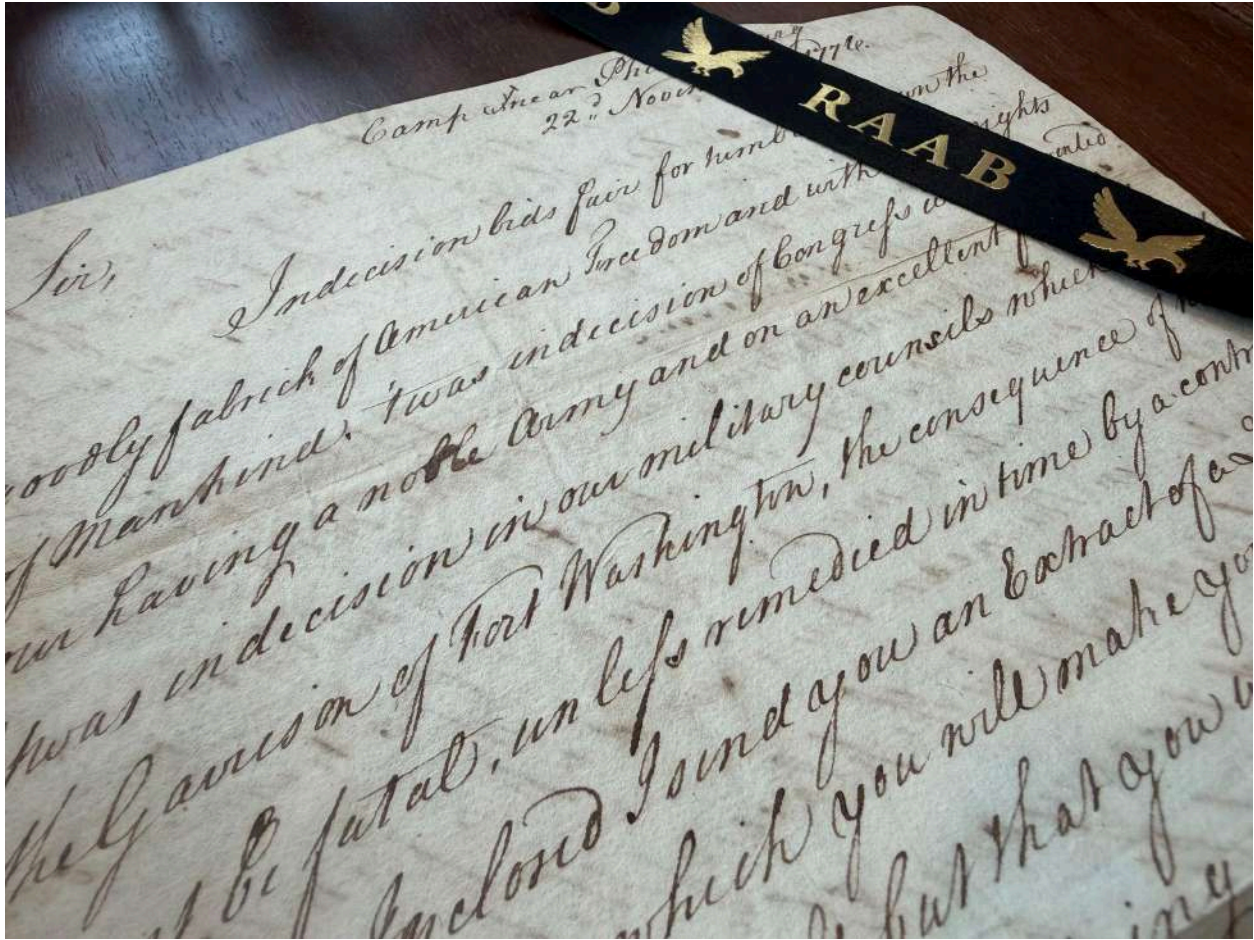 RAAB
Camp near
22d. 1776.
Sir,
Indecision bids fair for the
fabrick of American Freedom and with rights
of Mankind. 'twas indecision of Congress
our having a noble Army and on an excellent
twas indecision in our military councils which
the Garrison of Fort Washington, the consequence of
be fatal, unless remedied in time by a
Inclosed I send you an Extract of a
which you will make
but that you